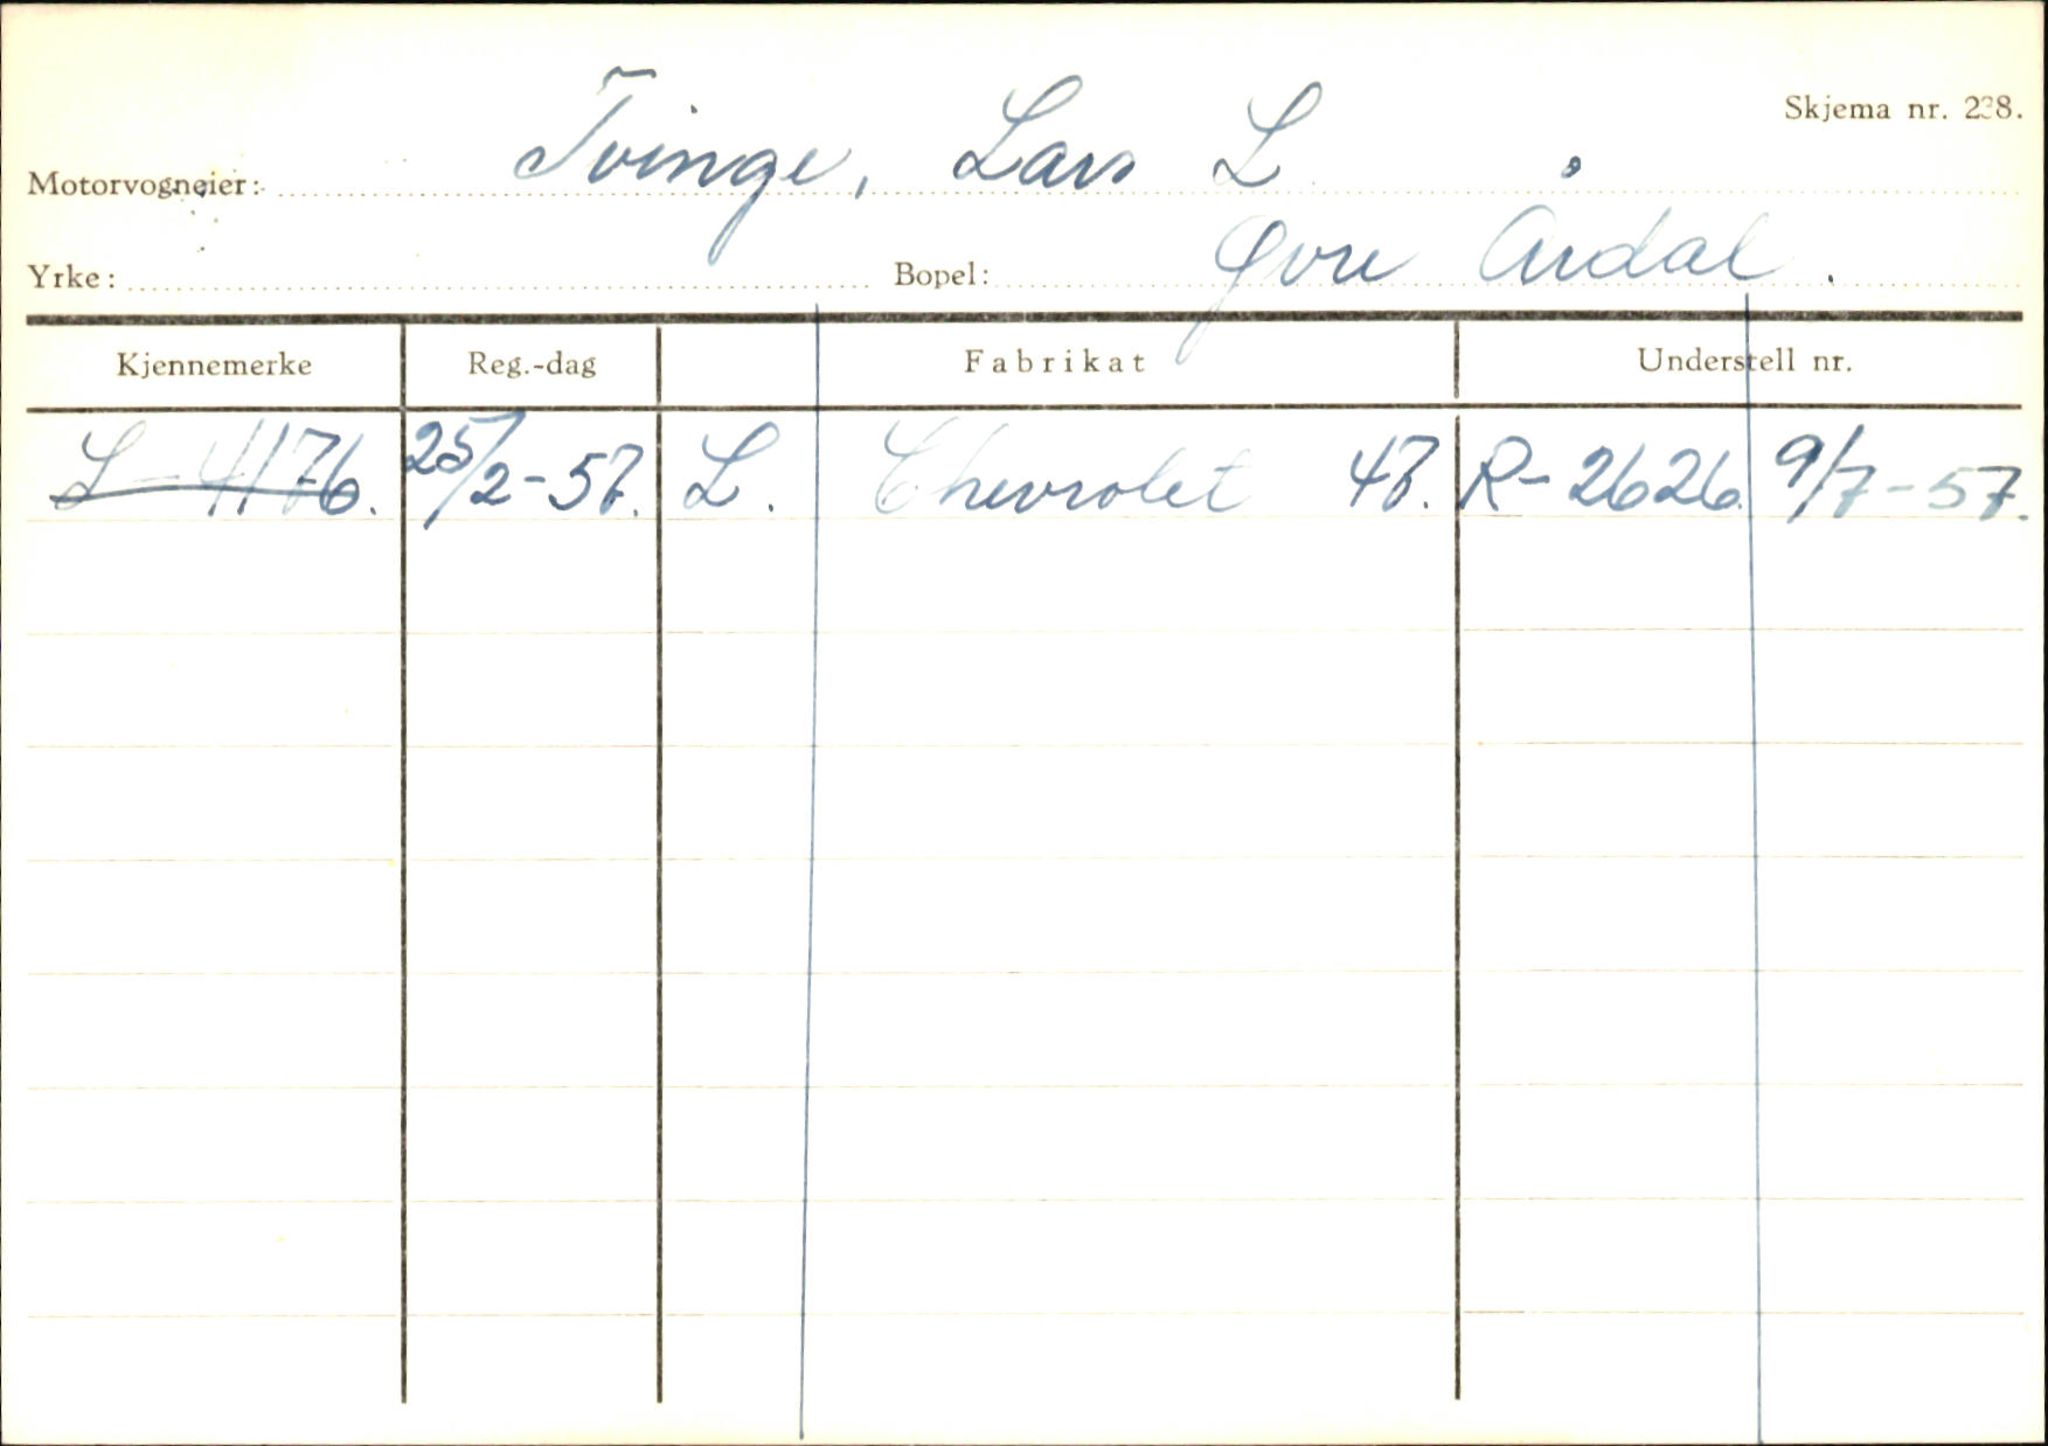 Skjema nr. 238.
Motorvogneier: Tvinge, Lars L
Yrke: Bopel: Øvre Årdal.
Kjennemerke Reg.-dag Fabrikat Understell nr.
L-4176. 25/2-57. L. Chevrolet 47. R-2626. 9/7-57.